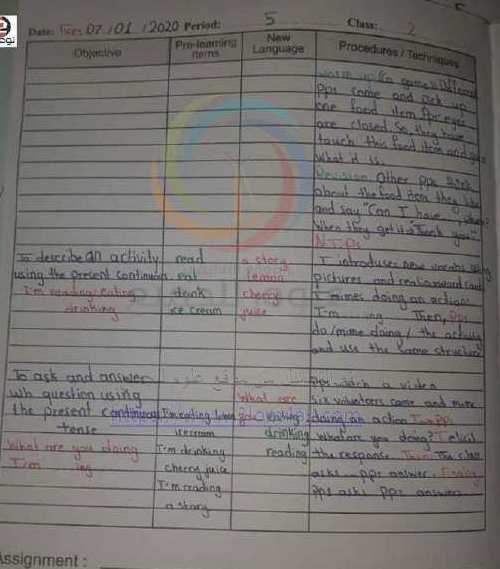 Date: Tue: 07/01/2020 Period: 5 Class: 2
Objective
Pre-learning
Items
New
Language
Procedures / Techniques
Warm up: (a game) Different
pps come and pick up
one food item Pps' eyes
are closed. So, they have
touch this food item and
what it is.
Revision Other pps think
about the food item they like
and say "Can I have
When they get it "Thank you"
To describe an activity
using the present continuous
I'm reading/eating
drinking
read
eat
drink
ice cream
a story
lemon
cherry
juice
I introduces new vocabs using
pictures and
I mimes doing an action:
I'm ing Then, pps
do/mime doing / the activity
and use the same structure
To ask and answer
wh question using
the present continuous
tense
What are you doing
I'm ing
I'm eating
icecream
I'm drinking
cherry juice
I'm reading
a story
What are
drinking
reading
pps watch a video
six volunteers come and mime
doing an action
What are you doing? I elicit
the response The class
asks pps answer.
pps asks pps answer
Assignment :